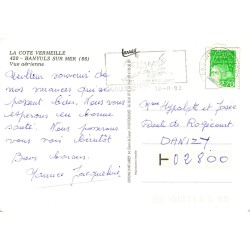 LA COTE VERMEILLE
420 - BANYULS SUR MER (66)
Vue aérienne
Meilleur souvenir de
nos vacances qui se
passent bien. Nous vous
espérons en bonne
santé. Nous passerons
vous voir bientôt
Bons baisers.
Jacqueline
Mme Hypolyte et Josée
Paul de Rogécourt
DANIZY
02800